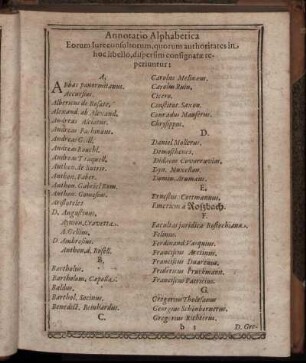 Annotatio Alphabetica
Eorum Jureconsultorum, quorum authoritates in
hoc libello, dispersim consignatæ re-
periuntur:
A.
Abbas panormitanus.
Accursius.
Albericus de Rosate.
Alexand. ab Alexand.
Andreas Alciatus.
Andreas Fachinæus.
Andreas Gail.
Andreas
Andreas Tiraquell.
Anthon.
Anthon. Faber.
Anthon. Gabriel Rom.
Anthon.
Aristoteles
D. Augustinus.
Aymon Cravetta.
A. Gellius.
D Ambrosius.
Anthon. d. Rosell.
B.
Bartholus.
Bartholom. Cæpolla.
Baldus.
Barthol. Socinus.
Benedict. Reinhardus.
C.
Carolus Molinæus.
Carolus Ruin.
Cicero.
Constitut. Saxon.
Conradus Mauserus.
Chrysippus.
D.
Daniel Mollerus.
Demosthenes.
Didacus Covarruvias.
Dyn. Muxellan.
Domin. Arumæus.
E.
Ernestus Cottmannus.
Emericus à Roßbach.
F.
Facultas juridica Rostochiana.
Felinus.
Ferdinand Vasquius.
Franciscus Aretinus.
Franciscus Duarenus.
Fridericus Pruckmann.
Franciscus Patricius.
G.
Gregorius Tholosanus
Georgius Schönborneruns.
Gregorius Richterus.
b 1
D. Gre-